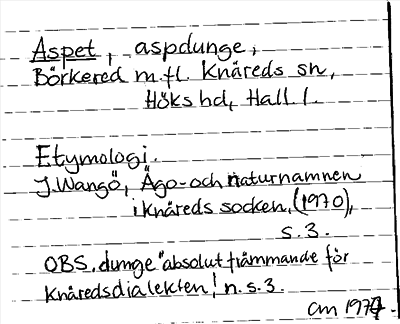 Aspet, aspdunge,
Börkered m.fl. Knäreds sn,
Höks hd, Hall l.
Etymologi.
J. Wangö, Ägo- och naturnamnen
i Knäreds socken, (1970),
s. 3.
OBS. dunge "absolut främmande för
Knäredsdialekten! n. s. 3.